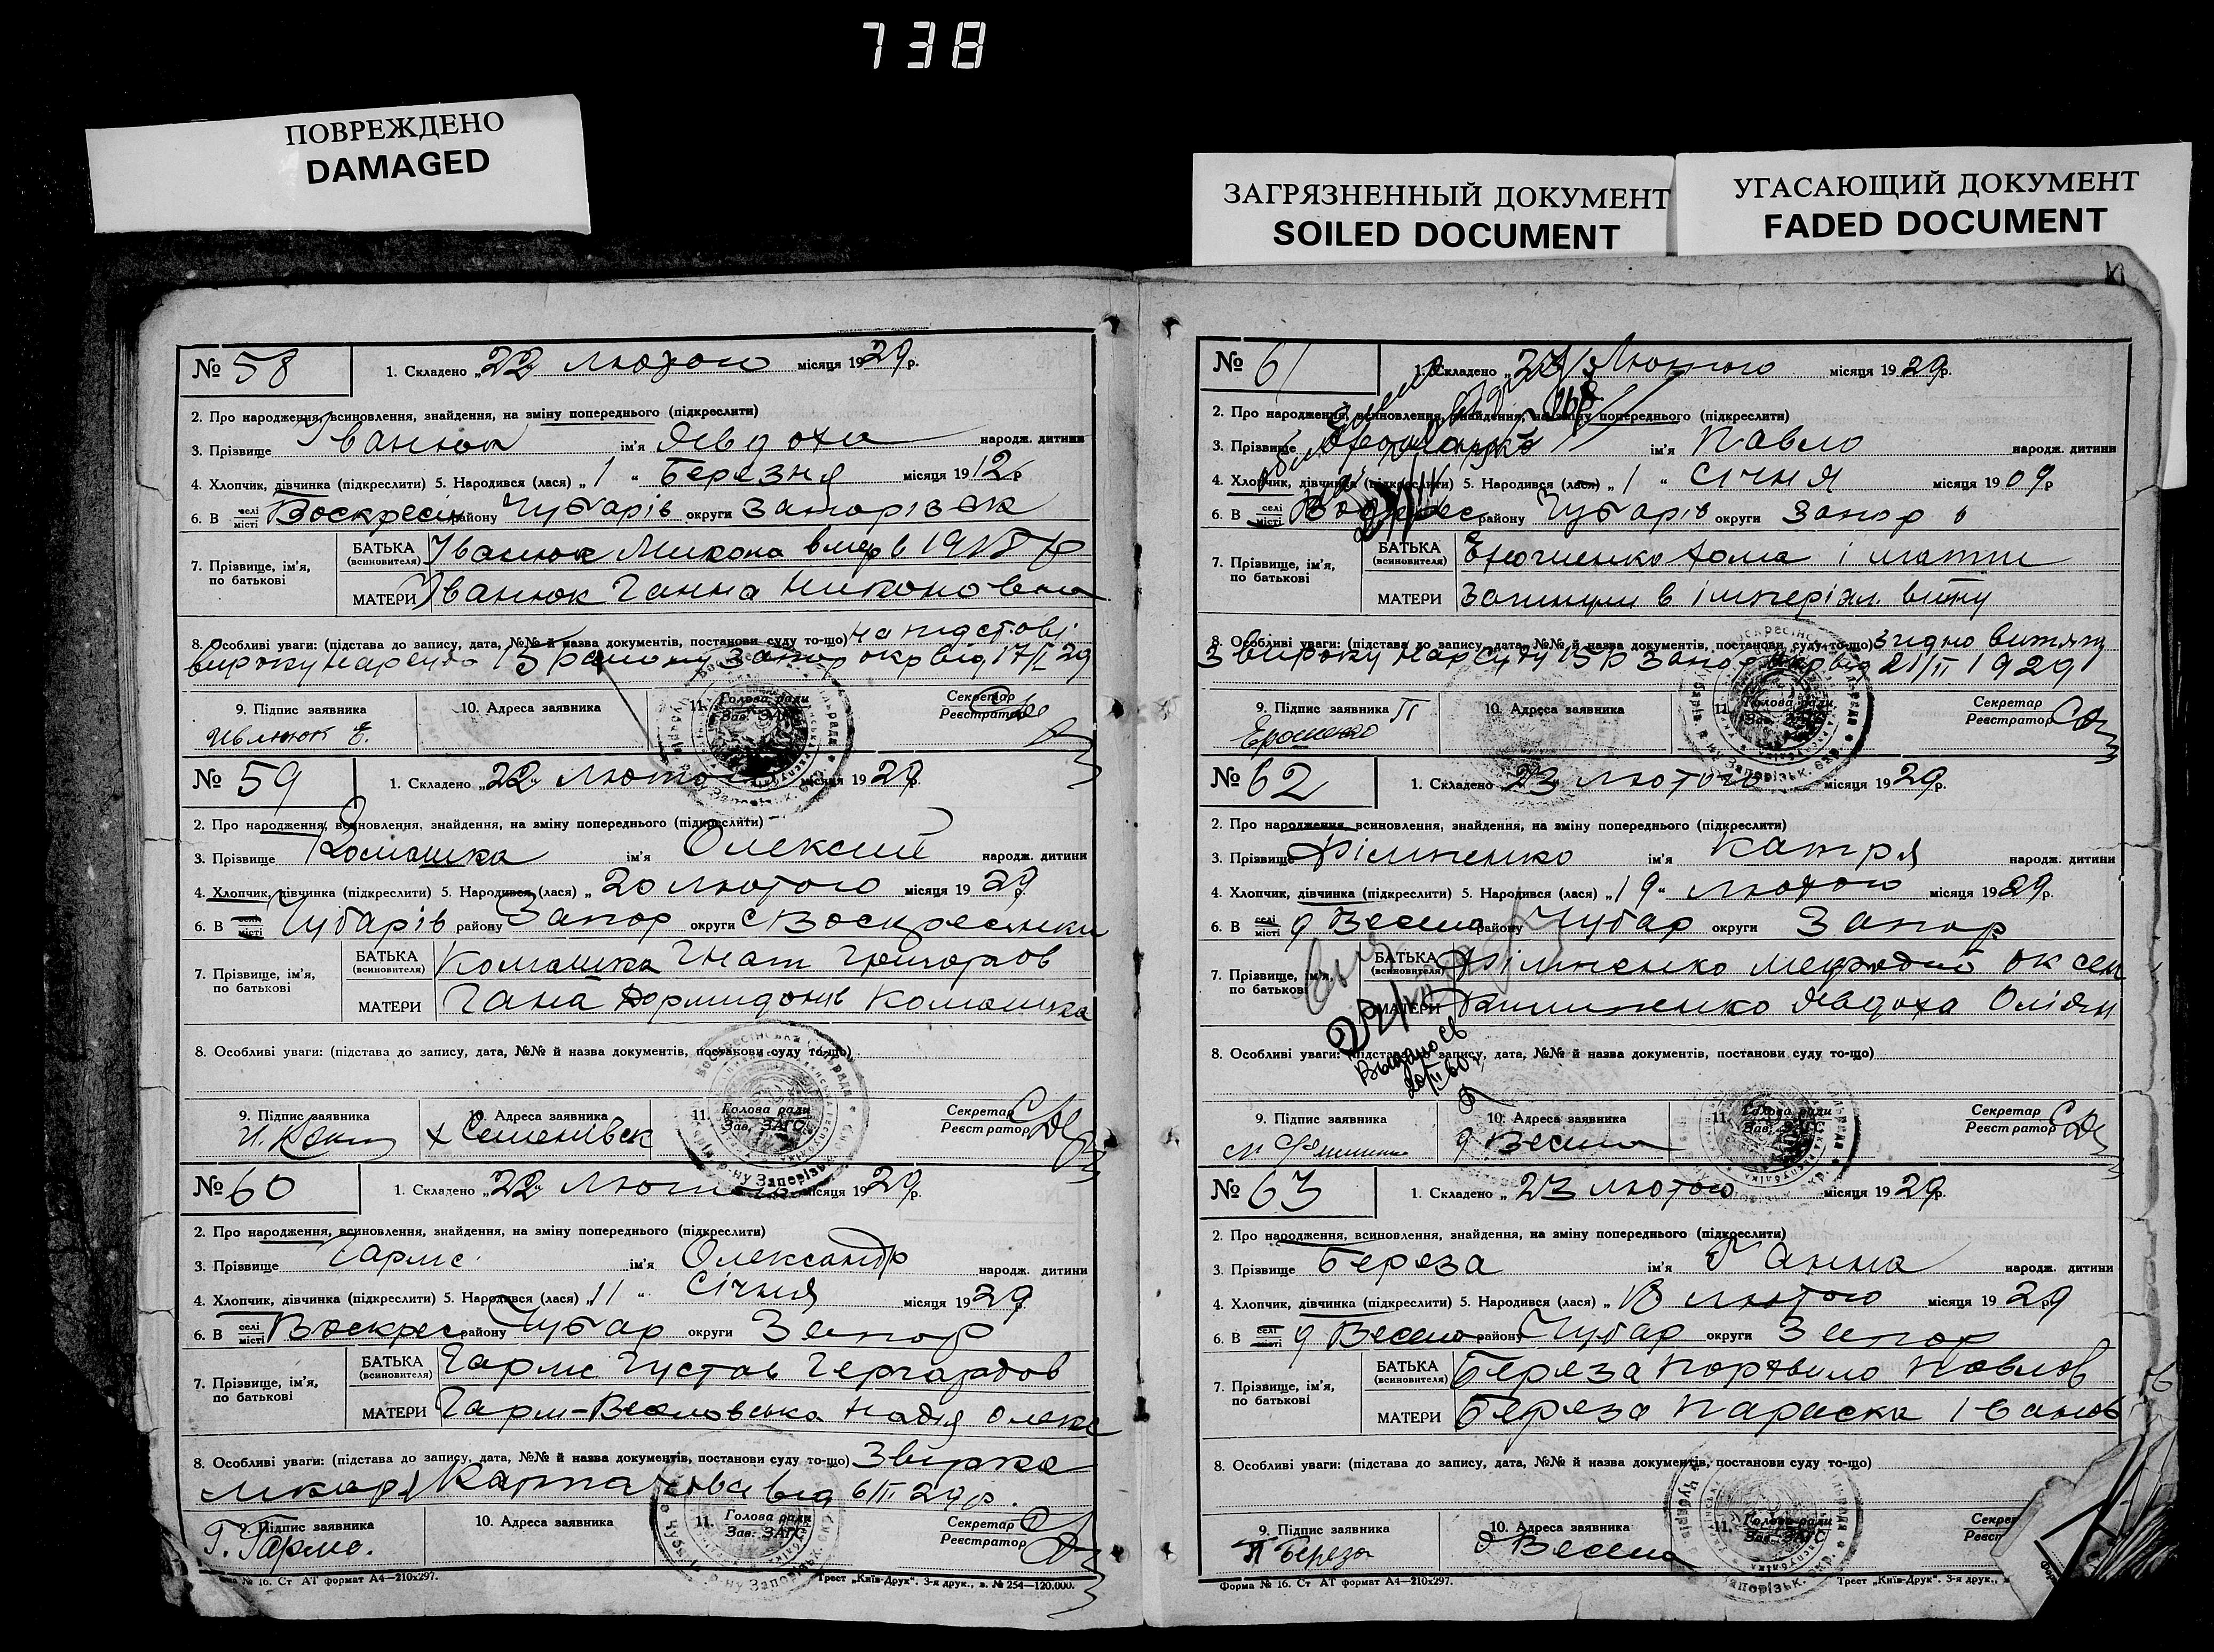 738
ПОВРЕЖДЕНО
DAMAGED
ЗАГРЯЗНЕННЫЙ ДОКУМЕНТ
SOILED DOCUMENT
УГАСАЮЩИЙ ДОКУМЕНТ
FADED DOCUMENT
№ 58
1. Складено „22“ лютого місяця 1929р.
2. Про народження, всиновлення, знайдення, на зміну попереднього (підкреслити)
3. Прізвище Іванюк ім'я Явдоха народж. дитини
4. Хлопчик, дівчинка (підкреслити) 5. Народився (лася) „1“ Березня місяця 1912р
6. В селі місті Воскресін району Чубарів округи Запорізьк
7. Прізвище, ім'я, по батькові
БАТЬКА (всиновителя) Іванюк Микона вмер в 1918 р
МАТЕРИ Іванюк Ганна Никоновна
8. Особливі уваги: (підстава до запису, дата, №№ й назва документів, постанови суду то-що) на підставі
вироку нарсуда 15 району Запор окр від 17/I 29
9. Підпис заявника
10. Адреса заявника
11. Голова ради Зав. ЗАГС
Секретар Реєстратор
Іванюк Є.
№ 59
1. Складено „22“ лютого місяця 1929р.
2. Про народження, всиновлення, знайдення, на зміну попереднього (підкреслити)
3. Прізвище Комашка ім'я Олексий народж. дитини
4. Хлопчик, дівчинка (підкреслити) 5. Народився (лася) „20 лютого місяця 1929р.
6. В селі місті Чубарів району Запор округи с Воскресенки
7. Прізвище, ім'я, по батькові
БАТЬКА (всиновителя) Комашка Гнат Григоров
МАТЕРИ Гана Дормидонів Комашка
8. Особливі уваги: (підстава до запису, дата, №№ й назва документів, постанови суду то-що)
9. Підпис заявника
10. Адреса заявника
11. Голова ради Зав. ЗАГС
Секретар Реєстратор
х Семенівск
№ 60
1. Складено „22“ лютого місяця 1929р.
2. Про народження, всиновлення, знайдення, на зміну попереднього (підкреслити)
3. Прізвище Гармс ім'я Олександр народж. дитини
4. Хлопчик, дівчинка (підкреслити) 5. Народився (лася) „11“ Січня місяця 1929р.
6. В селі місті Воскрес району Чубар округи Запор
7. Прізвище, ім'я, по батькові
БАТЬКА (всиновителя) Гармс Густав Гергардов
МАТЕРИ Гармс-Веселовська Надія Олекс
8. Особливі уваги: (підстава до запису, дата, №№ й назва документів, постанови суду то-що)
від 6/II 29 р.
9. Підпис заявника
10. Адреса заявника
11. Голова ради Зав. ЗАГС
Секретар Реєстратор
Г. Гармс.
Форма № 16. Ст АТ формат А4—210х297.
Трест „Київ-Друк“. 3-я друк., в. № 254—120.000.
№ 61
1. Складено „23“ Лютого місяця 1929р.
2. Про народження, всиновлення, знайдення, на зміну попереднього (підкреслити)
3. Прізвище ім'я Павло народж. дитини
4. Хлопчик, дівчинка (підкреслити) 5. Народився (лася) „1“ Січня місяця 1909р
6. В селі місті району Чубарів округи Запор
7. Прізвище, ім'я, по батькові
БАТЬКА (всиновителя) Єрошенко Хома і мати
МАТЕРИ Загинули в імперіял. війну
8. Особливі уваги: (підстава до запису, дата, №№ й назва документів, постанови суду то-що) Згідно витягу
З вироку Нарсуду 15 р Запор окр від 21/II 1929
9. Підпис заявника П
10. Адреса заявника
11. Голова ради Зав. ЗАГС
Секретар Реєстратор
Єрошенко
№ 62
1. Складено „23 лютого місяця 1929р.
2. Про народження, всиновлення, знайдення, на зміну попереднього (підкреслити)
3. Прізвище Філипенко ім'я Катря народж. дитини
4. Хлопчик, дівчинка (підкреслити) 5. Народився (лася) „19“ лютого місяця 1929р.
6. В селі місті д Весела району Чубар округи Запор
7. Прізвище, ім'я, по батькові
БАТЬКА (всиновителя) Філипенко Мефодий Оксен
МАТЕРИ Филипенко Явдоха Оліян
8. Особливі уваги: (підстава до запису, дата, №№ й назва документів, постанови суду то-що)
Выдано св
20/II 60 г.
9. Підпис заявника
10. Адреса заявника
11. Голова ради Зав. ЗАГС
Секретар Реєстратор
д Весела
№ 63
1. Складено „23 лютого місяця 1929р.
2. Про народження, всиновлення, знайдення, на зміну попереднього (підкреслити)
3. Прізвище Береза ім'я Ганна народж. дитини
4. Хлопчик, дівчинка (підкреслити) 5. Народився (лася) „18 лютого місяця 1929р
6. В селі місті д Весела району Чубар округи Запор
7. Прізвище, ім'я, по батькові
БАТЬКА (всиновителя) Береза Порфило Павлов
МАТЕРИ Береза Параска Іванов
8. Особливі уваги: (підстава до запису, дата, №№ й назва документів, постанови суду то-що)
9. Підпис заявника
10. Адреса заявника
11. Голова ради Зав. ЗАГС
П Береза
д Весела
Форма № 16. Ст АТ формат А4—210х297.
Трест „Київ-Друк“. 3-я друк.,